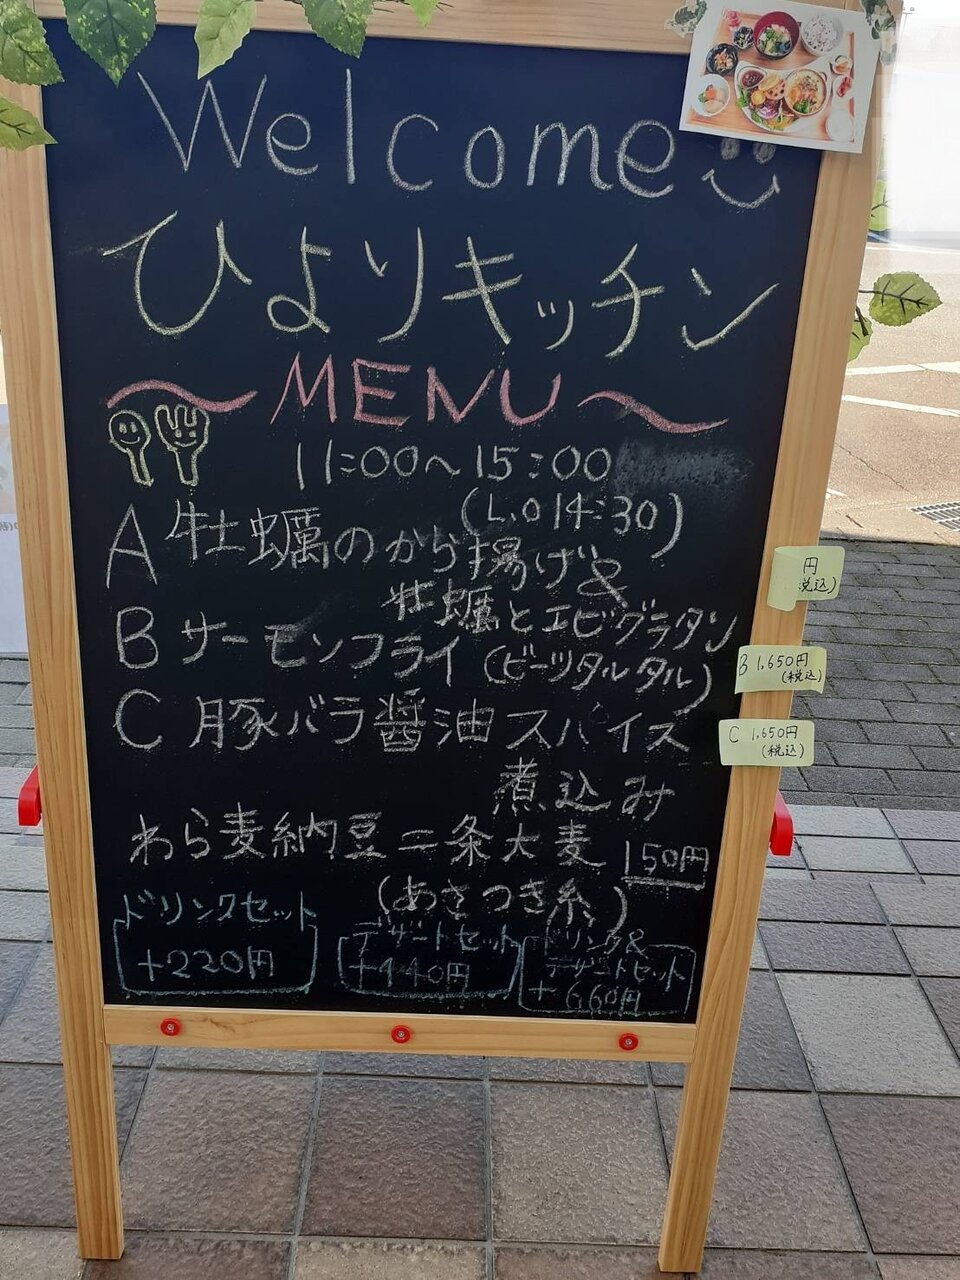 Welcome
ひよりキッチン
～MENU～
11:00～15:00
(L.O 14:30)
A 牡蠣のから揚げ&
牡蠣とエビグラタン
円
税込)
B サーモンフライ (ビーツタルタル)
B 1,650円
(税込)
C 豚バラ醤油スパイス
煮込み
C 1,650円
(税込)
わら麦納豆=二条大麦 150円
(あさつき糸)
ドリンクセット
+220円
デザートセット
+440円
ドリンク&
デザートセット
+660円